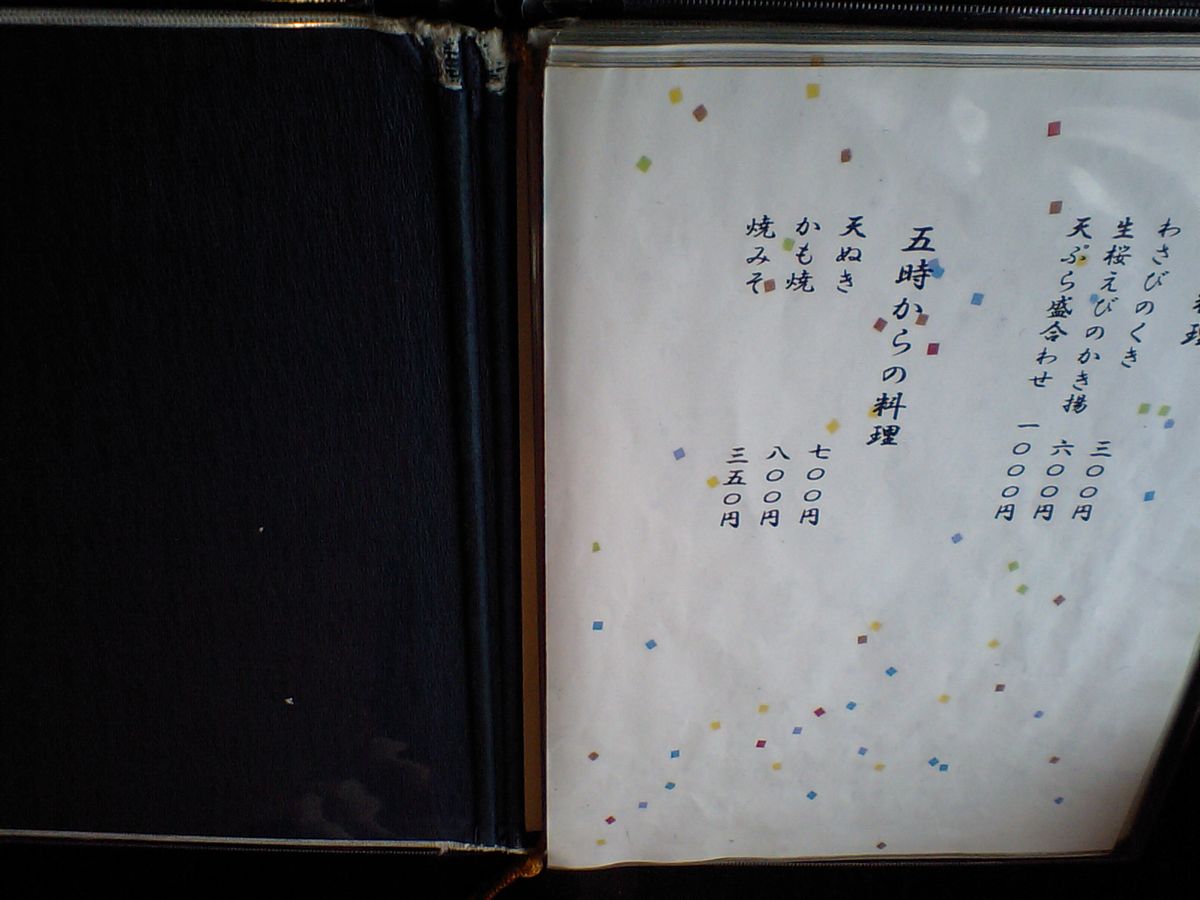 料理
わさびのくき
三〇〇円
生桜えびのかき揚
六〇〇円
天ぷら盛合わせ
一〇〇〇円
五時からの料理
天ぬき
七〇〇円
かも焼
八〇〇円
焼みそ
三五〇円